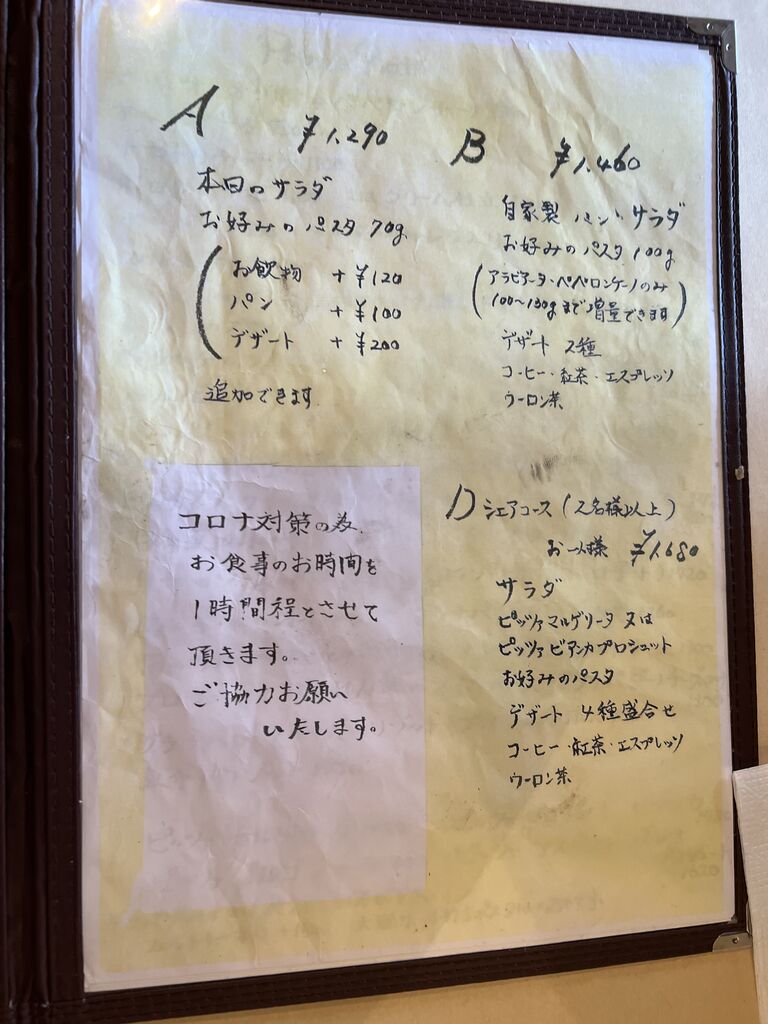 A ¥1,290
本日のサラダ
お好みのパスタ 70g
お飲物 +¥120
パン +¥100
デザート +¥200
追加できます
B ¥1,460
自家製 パン・サラダ
お好みのパスタ 100g
(アラビアータ・ペペロンチーノのみ
100〜130gまで増量できます)
デザート 2種
コーヒー・紅茶・エスプレッソ
ウーロン茶
コロナ対策の為、
お食事のお時間を
1時間程とさせて
頂きます。
ご協力お願い
いたします。
D シェアコース(2名様以上)
お一人様 ¥1,680
サラダ
ピッツァマルゲリータ 又は
ピッツァ ビアンカプロシュット
お好みのパスタ
デザート 4種盛合せ
コーヒー・紅茶・エスプレッソ
ウーロン茶